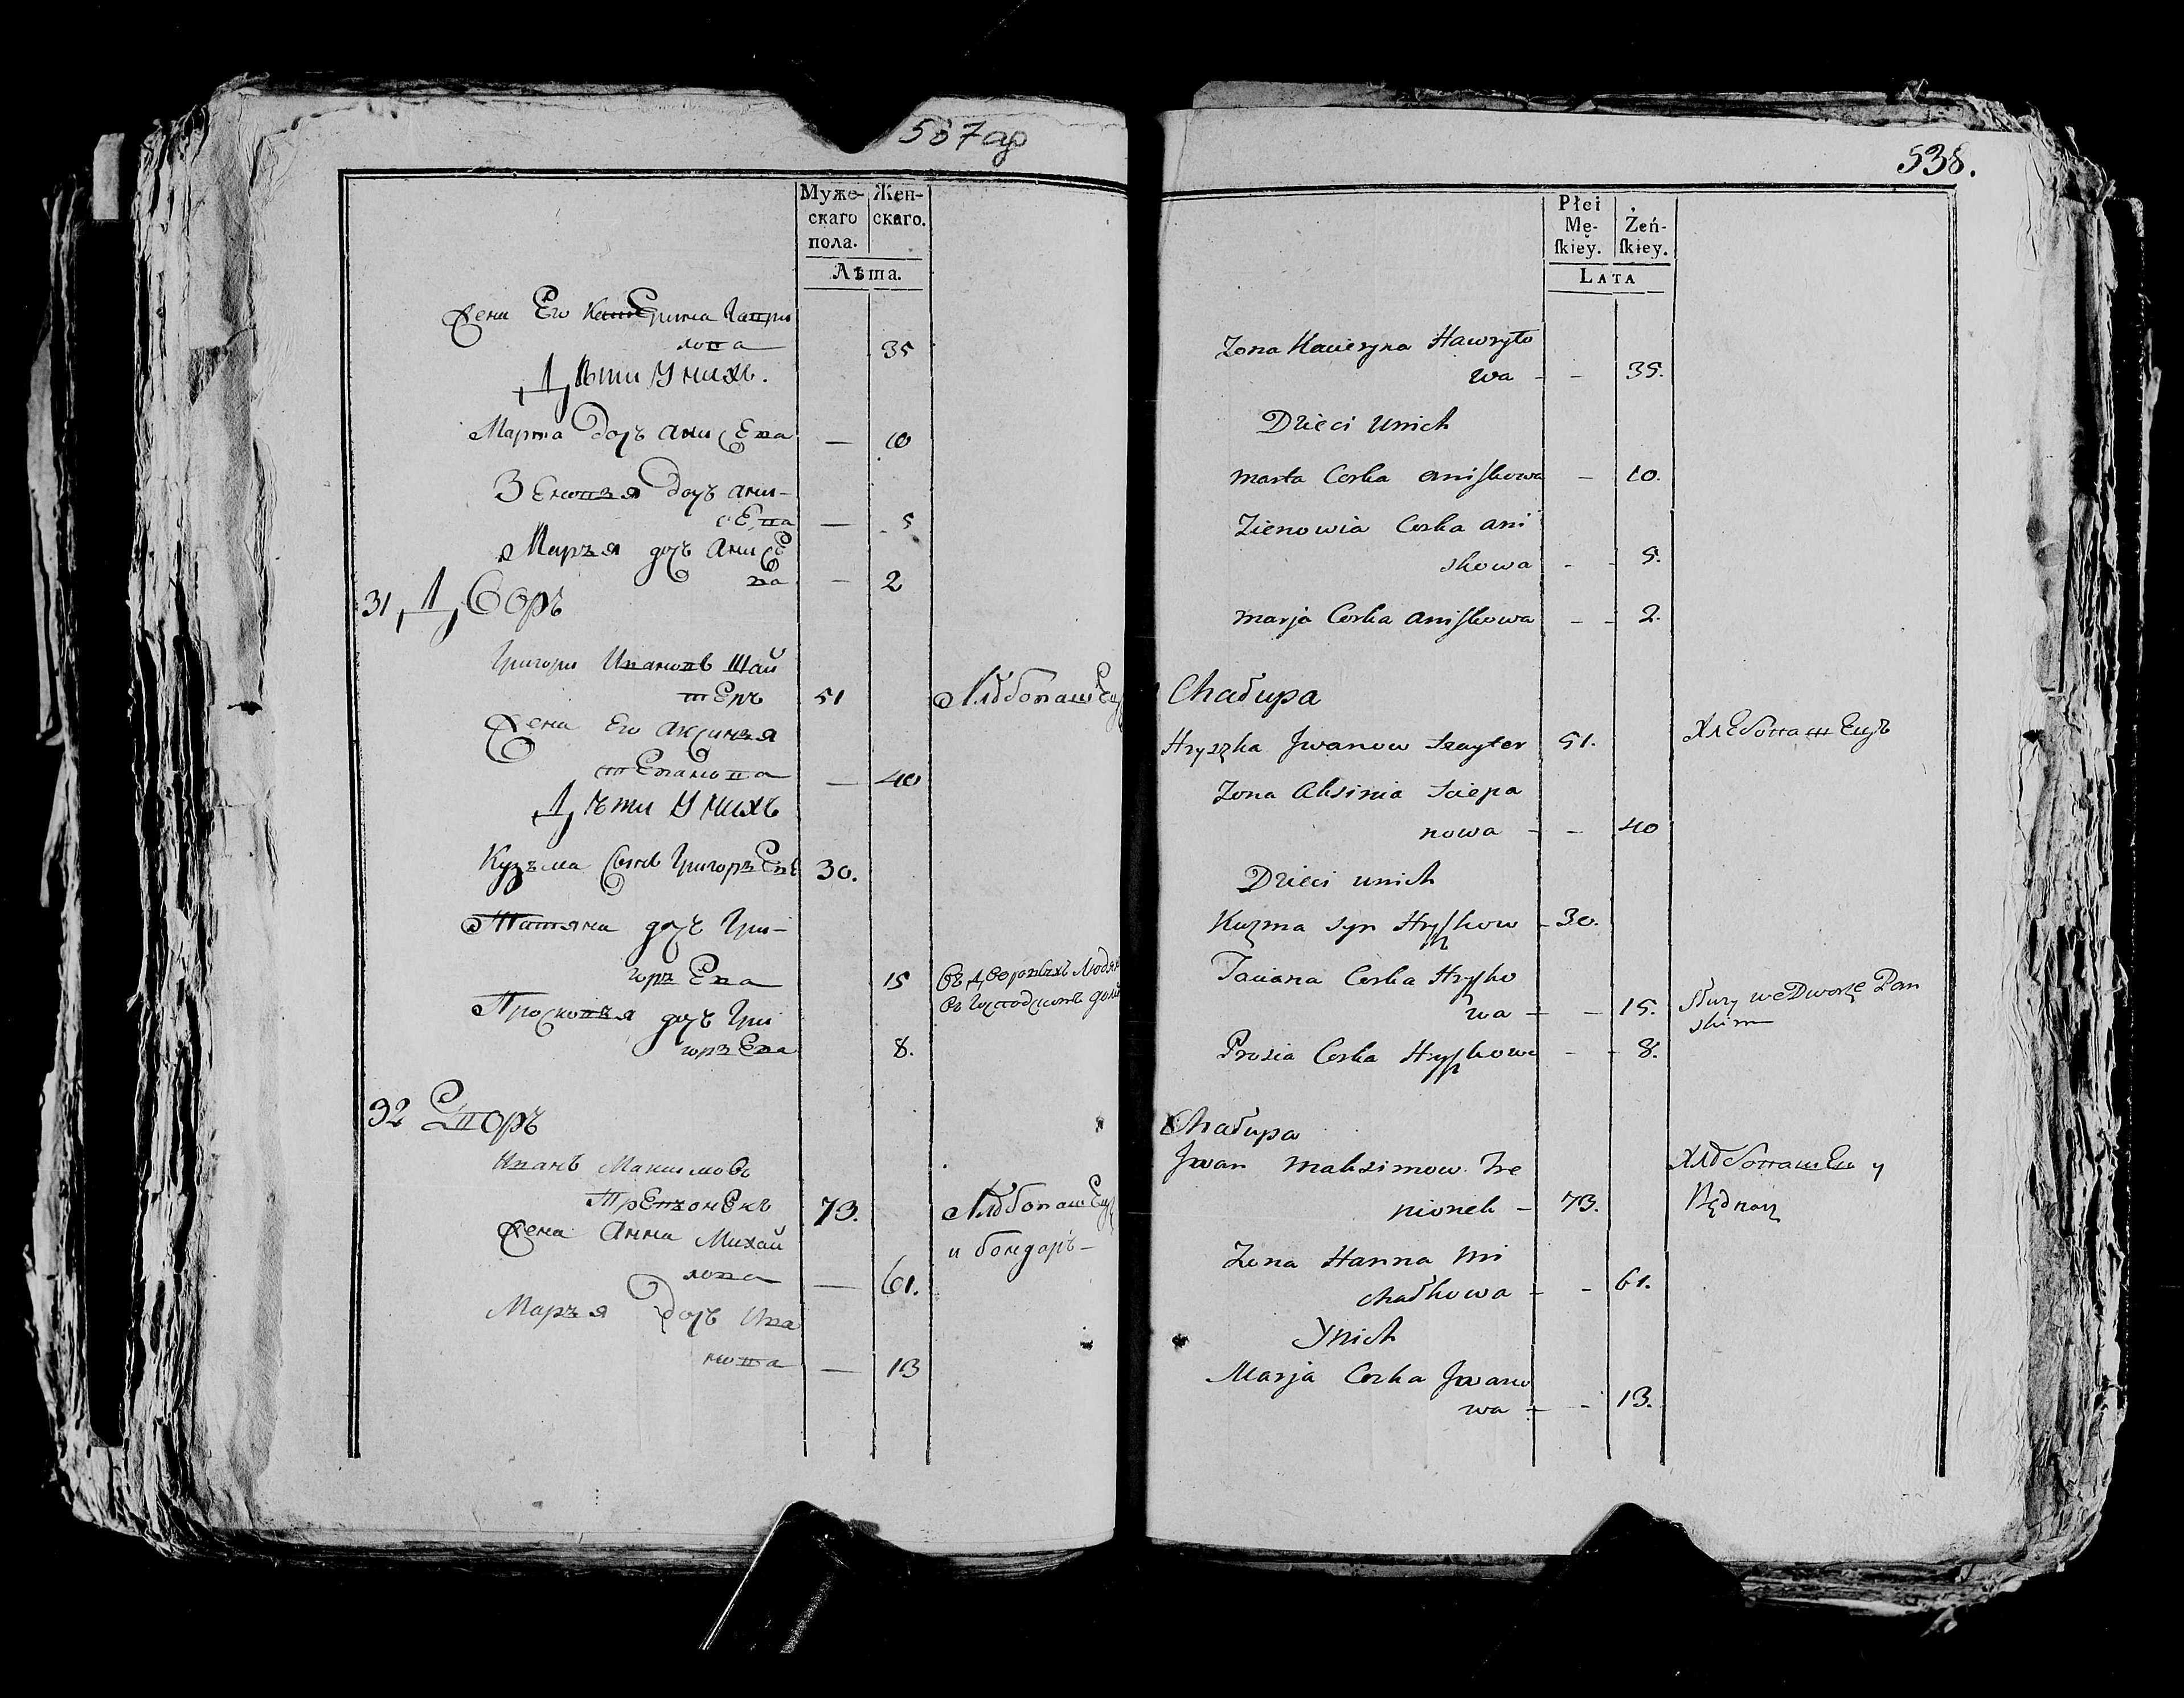 538.
Муже-
скаго
пола.
Жен-
скаго.
Лѣта.
Жена Его Катерина Гаври
лова 35
Дѣти У нихъ.
Марта дочь анисева — 10
Зеновья дочь ани-
сева — 5
Марья дочь Анисе
ва — 2
31 Дворъ
Григори Ивановъ Шай
теръ 51 Хлѣбопашец
Жена Его аксинья
степанова — 40
Дѣти У нихъ
Кузьма сынъ Григорьевъ 30.
Татяна дочь Гри-
горьева 15 Въ дворовыхъ людях
въ господскомъ доме
Просковья дочь Гри
горьева 8.
32 Дворъ
Иванъ Максимовъ
Тревьонекъ 73. Хлѣбопашец
и бондарь —
Жена Анна Михай
лова — 61.
Марья дочь Ива
нова — 13
Płci
Mę-
ſkiey.
Żeń-
ſkiey.
LATA
Zona Kacieryna Hawryło
wa - - 35.
Dzieci unich
marta Corka aniſkowa - 10.
Zienowia Corka ani
skowa - - 5.
marja Corka aniſkowa - - 2.
Chałupa
Hryszka Jwanow Szayter 51. хлебопашецъ
Zona Aksinia Sciepa
nowa - - 40
Dzieci unich
Kuzma syn Hryſzkow - 30.
Taciana Corka Hryszko
wa - - 15. Służy we Dworze Pan
skim
Prosia Corka Hryſzkowa - - 8.
Chałupa
Jwan Maksimow Tre
pionek - 73. хлѣбопашец y
Będnarz
Zona Hanna Mi
chałkowa - - 61.
Ynich
Marja Corka Jwano
wa - - 13.